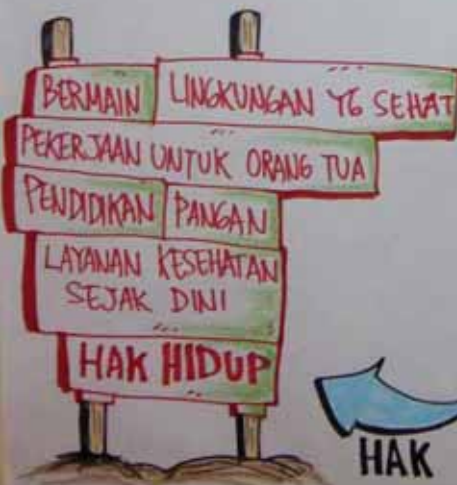 BERMAIN LINGKUNGAN YG SEHAT
PEKERJAAN UNTUK ORANG TUA
PENDIDIKAN PANGAN
LAYANAN KESEHATAN
SEJAK DINI
HAK HIDUP
HAK